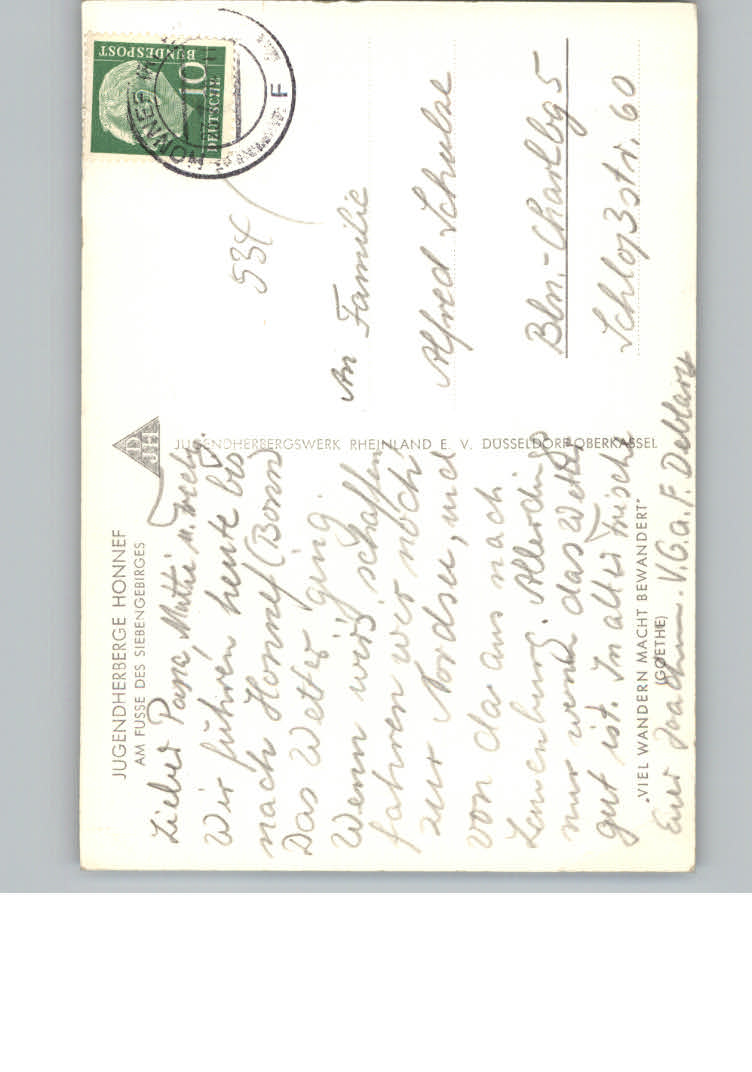 JUGENDHERBERGE HONNEF
AM FUSSE DES SIEBENGEBIRGES
Lieber Papa, Mutti u.
Wir fuhren heute bis
nach Honnef (Bonn
Das Wetter ging.
Wenn wir's schaffen
fahren wir noch
zur Nordsee, und
von da aus nach
Lauenburg. Allerdings
nur wenn das Wetter
gut ist. In alter Frische
Euer Joachim. V.G.a.F.
„VIEL WANDERN MACHT BEWANDERT"
(GOETHE)
JUGENDHERBERGSWERK RHEINLAND E. V. DÜSSELDORF-OBERKASSEL
DEUTSCHE
BUNDESPOST
10
HONNEF
F
534
An Familie
Alfred Schulze
Bln.-Charlbg 5
Schloßstr. 60